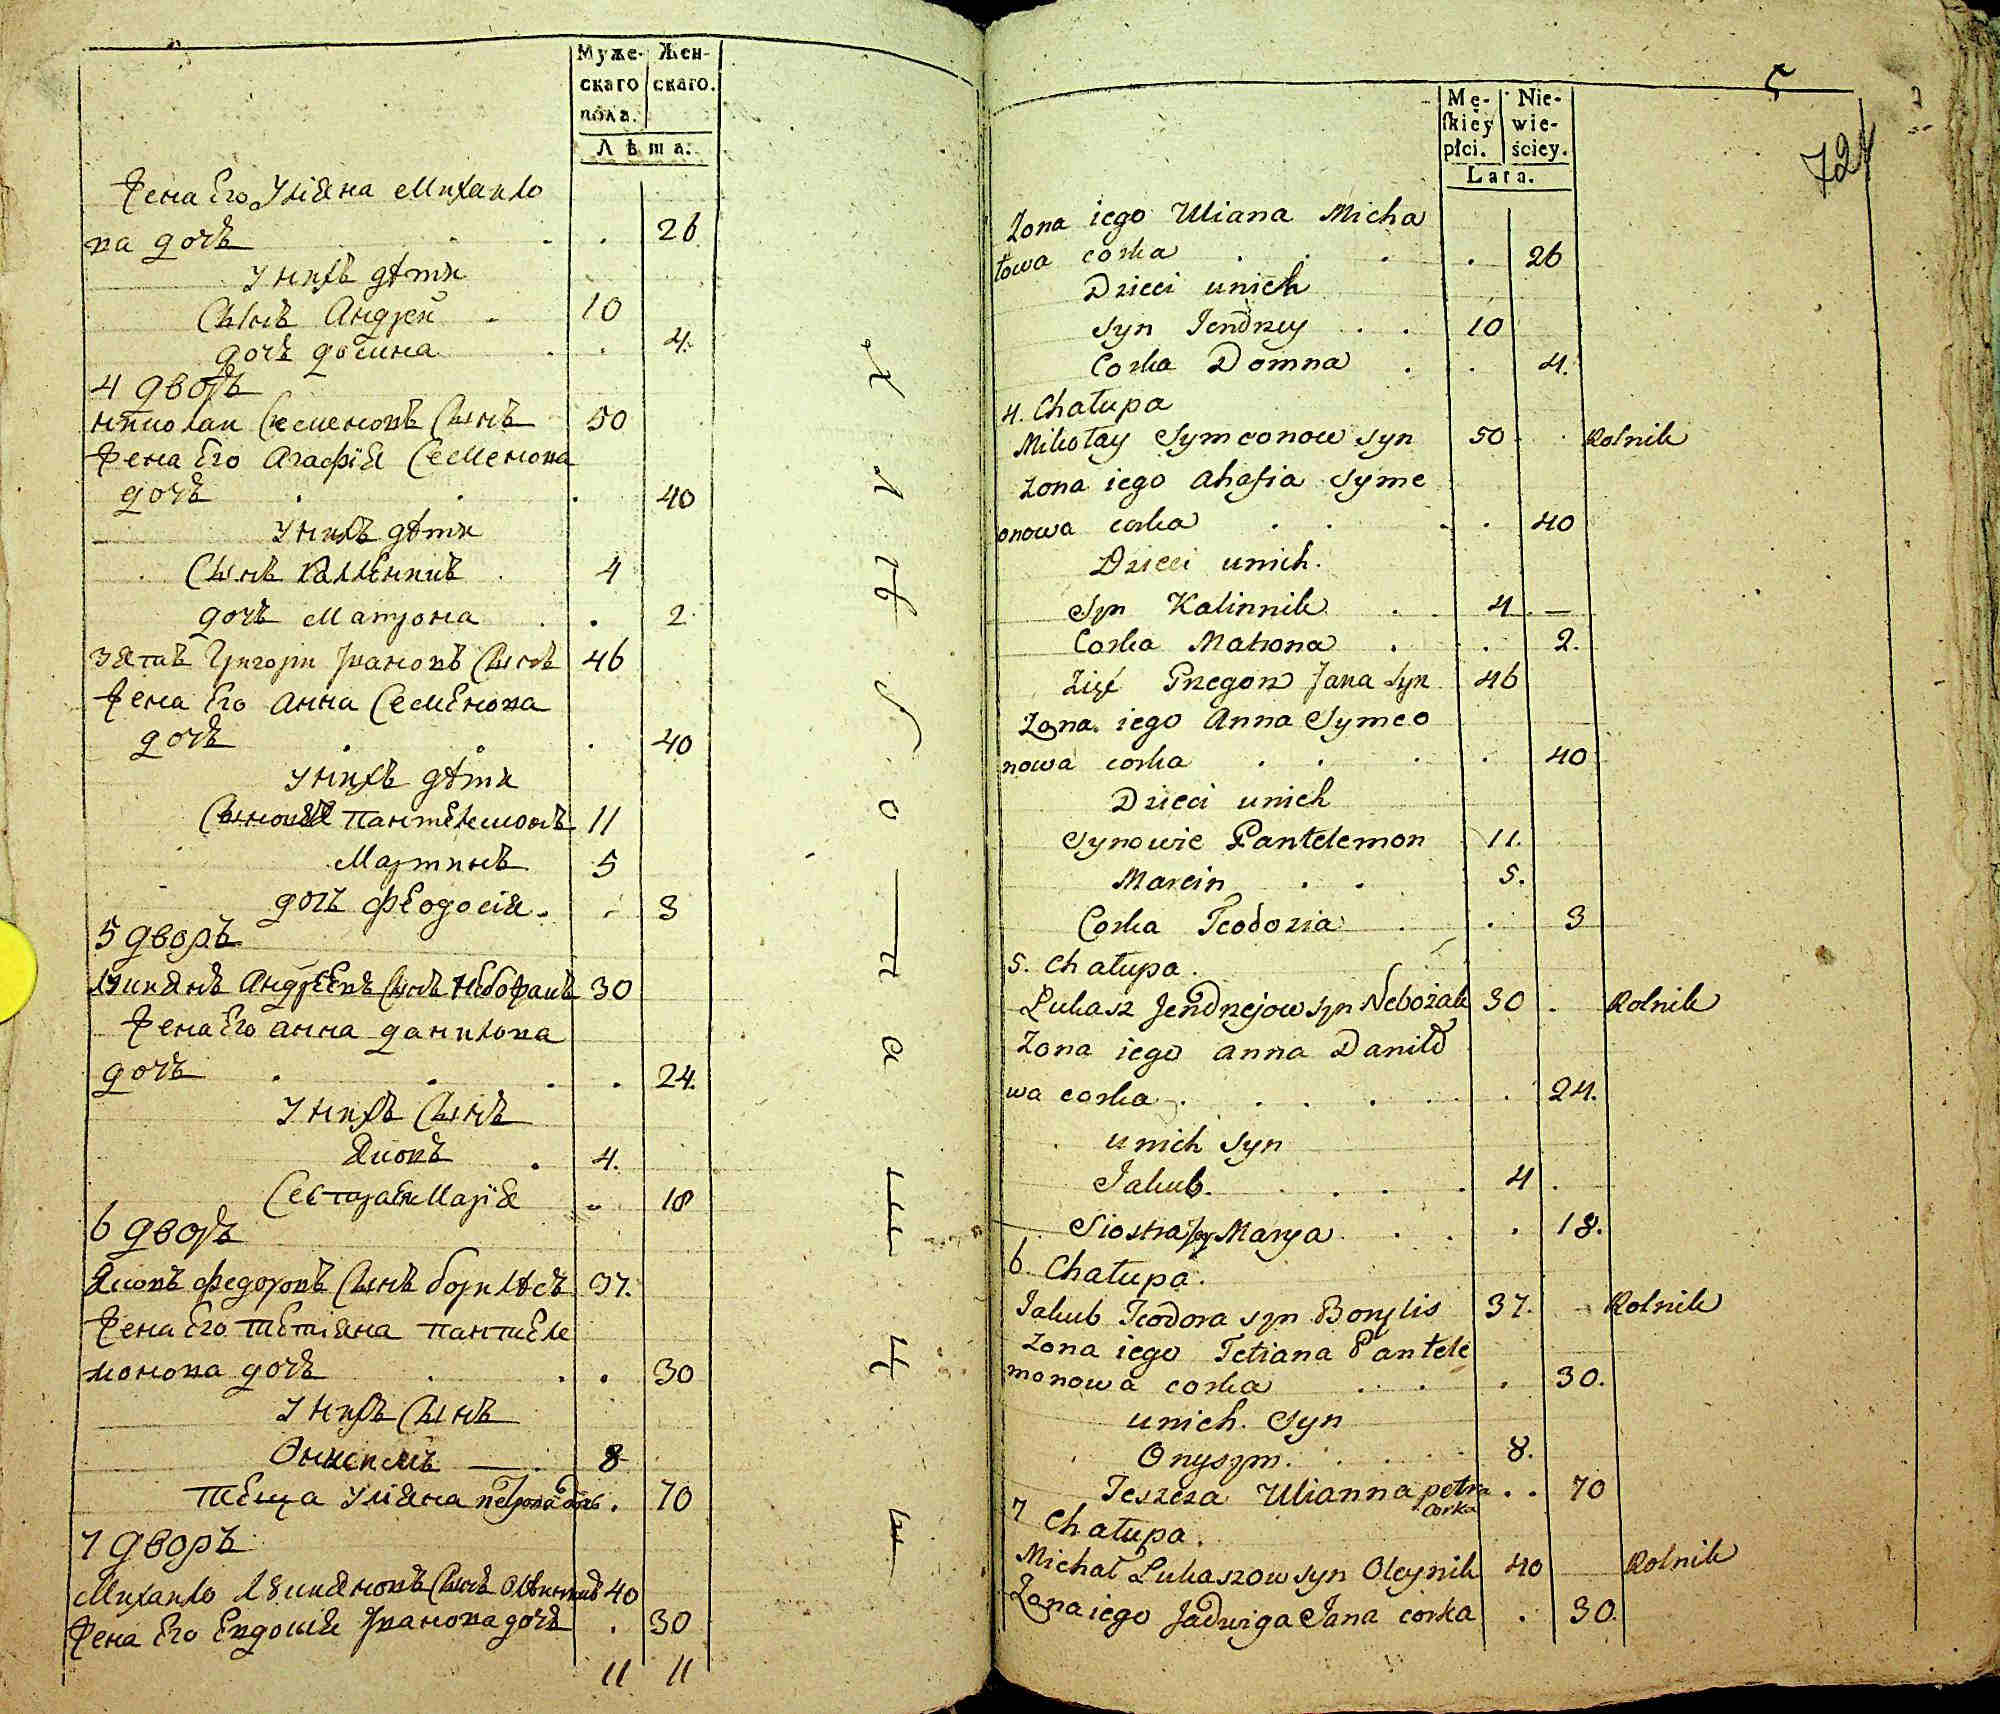 Муже-
скаго
пола.
Жен-
скаго.
Лѣта:
Жена Его Улiяна Михайло
ва дочь . . . 26
У нихъ дѣти
Сынъ Андрей . 10
дочь домна . . 4.
4 дворъ
Николай Семеновъ Сынъ 50
Жена Его Агафiя Семенова
дочь . . . 40
У нихъ дѣти
Сынъ Каленикъ . 4
дочь Матрона . . 2
Зять Григори Ивановъ Сынъ 46
Жена Его Анна Семенова
дочь . . . 40
У нихъ дѣти
Сыновья Пантелемонъ 11
Мартинъ 5
дочь Феодосiя . . 3
5 дворъ
Лукянъ Андреевъ Сынъ Небожакъ 30
Жена Его Анна данилова
дочь . . . . 24.
У нихъ Сынъ
Яковъ . 4.
Сестра Марiя . 18
6 дворъ
Яковъ Федоровъ Сынъ борилѣсъ 37.
Жена Его Тетiяна Пантеле
монова дочь . . . 30
У нихъ Сынъ
Онисимъ — 8
Теща Улiяна петрова дочь . 70
7 дворъ
Михайло Лукяновъ Сынъ Олѣйникъ 40
Жена Его Евдокiя Иванова дочь . 30
11 11
5
724
Mę-
ſkiey
płci.
Nie-
wie-
ściey.
Lata.
Zona iego Uliana Micha
łowa corka . . . . 26
Dzieci unich
Syn Jendrzey . . 10
Corka Domna . . 4.
4. Chałupa
Mikołay Symeonow syn 50 . . Rolnik
Zona iego Ahafia Syme
onowa corka . . . . 40
Dzieci unich.
Syn Kalinnik . 4 —
Corka Matrona . . 2.
Zięć Grzegorz Jana Syn 46
Zona iego Anna Symeo
nowa corka . . . . 40
Dzieci unich
Synowie Pantelemon 11.
Marcin . . 5.
Corka Teodozia . . 3
5. Chałupa.
Łukasz Jendrzejow syn Nebożak 30 . Rolnik
Zona iego anna Daniło
wa corka . . . . . 24.
unich Syn
Jakub. . . . . 4 .
Siostra jey Marya . . . 18.
6 Chałupa.
Jakub Teodora syn Borylis 37. Rolnik
Zona iego Tetiana Pantele
monowa corka . . . 30.
unich. Syn
Onyszym. . . . 8.
Teszcza Ulianna petra corka . . 70
7 Chałupa.
Michał Łukaszow syn Oleynik 40 Rolnik
Zona iego Jadwiga Jana corka . 30.